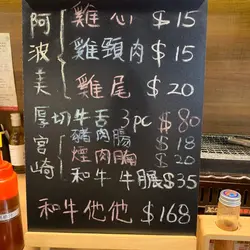 阿波美
雞心 $15
雞頸肉 $15
雞尾 $20
厚切牛舌 3pc $80
宮崎
豬肉腸 $18
煙肉腸 $20
和牛牛脹 $35
和牛他他 $168